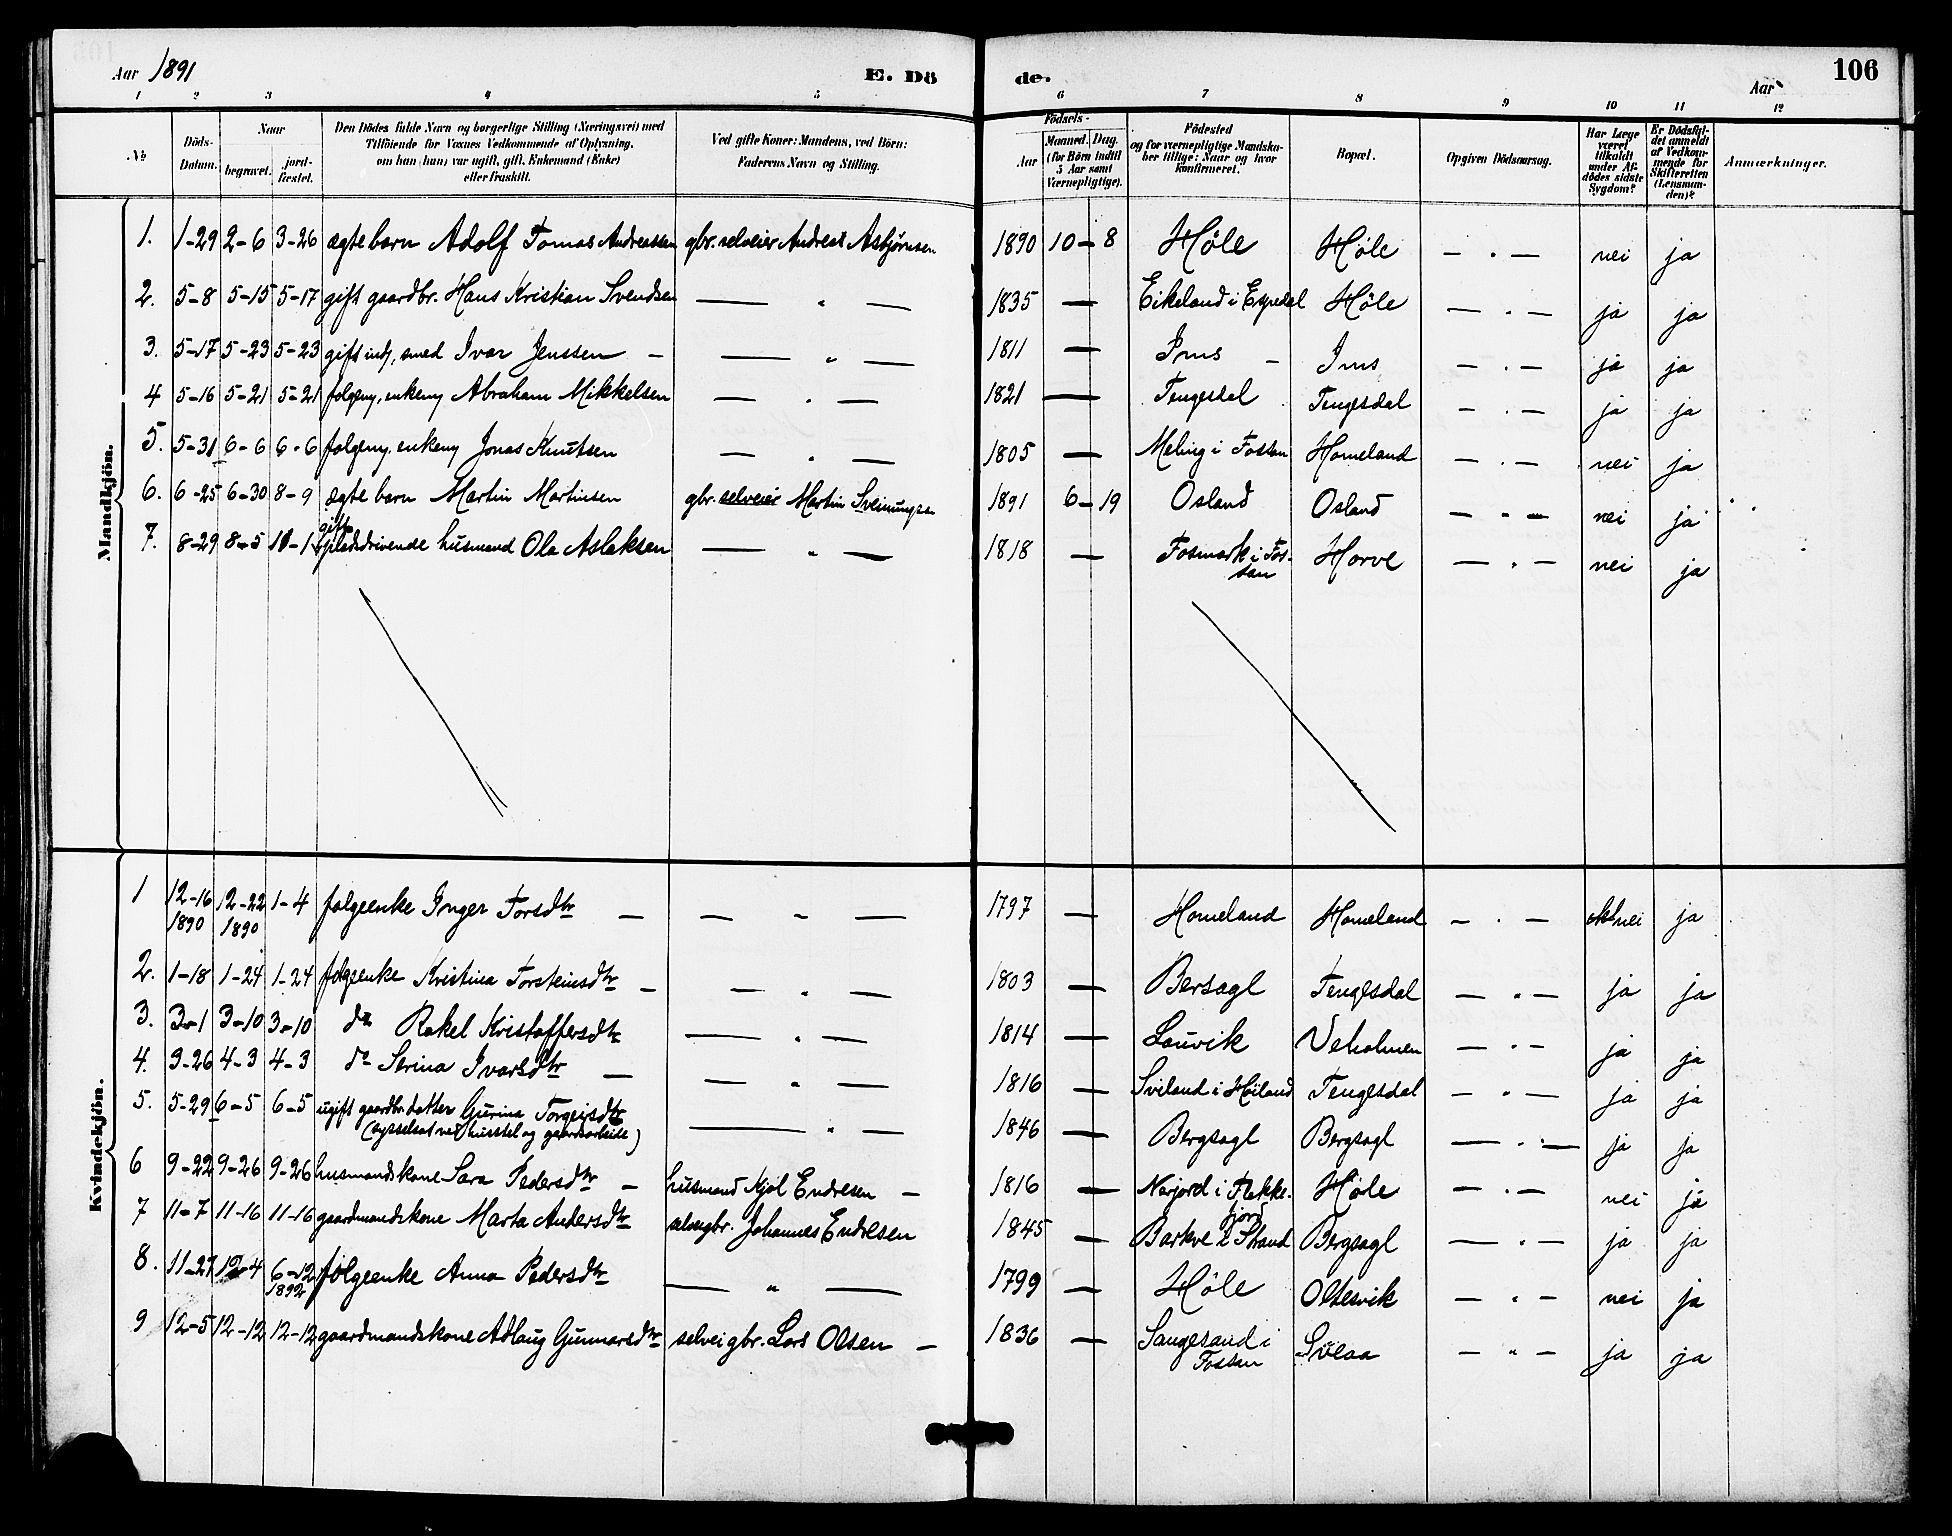 Aar 1891
E. Dö
de.
106
Aar
1 2 3 4 5 6 7 8 9 10 11 12
No.
Döds-Datum.
Naar
begravet.
jord-fæstet.
Den Dödes fulde Navn og borgerlige Stilling (Næringsvei) med
Tilföiende for Voxnes Vedkommende af Oplysning,
om han (hun) var ugift, gift, Enkemand (Enke)
eller fraskilt.
Ved gifte Koner: Mandens, ved Börn:
Faderens Navn og Stilling.
Födsels-
Aar
Maaned. Dag.
(for Börn indtil
5 Aar samt
Værnepligtige).
Födested
og for værnepligtige Mandska-
ber tillige: Naar og hvor
konfirmeret.
Bopæl.
Opgiven Dödsaarsag.
Har Læge
været
tilkaldt
under Af-
dödes sidste
Sygdom?
Er Dödsfal-
det anmeldt
af Vedkom-
mende for
Skifteretten
(Lensman-
den)?
Anmærkninger.
Mandkjön.
1. 1-29 2-6 3-26 ægte barn Adolf Tomas Andreassen gbr. selveier Andreas Asbjørnsen 1890 10-8 Høle Høle — " — nei ja
2. 5-8 5-15 5-17 gift gaardbr. Hans Kristian Svendsen — " — 1835 — Eikeland i Espedal Høle — " — ja ja
3. 5-17 5-23 5-23 gift inds, smed Ivar Jenssen — — " — 1811 — Ims — Ims — " — ja ja
4 5-16 5-21 5-21 folgem, enkem Abraham Mikkelsen — " — 1821 — Tengesdal Tengesdal — " — ja ja
5. 5-31 6-6 6-6 folgem, enkem Jonas Knutsen — " — 1805 — Meling i Fossan Homeland — " — nei ja
6. 6-25 6-30 8-9 ægte barn Martin Martinsen gbr. selveier Martin Sveinungsn 1891 6-19 Osland Osland — " — nei ja
7. 8-29 8-5 10-1 gift pladsdrivende husmand Ola Aslaksen — " — 1818 — Fosmark i Fos-
san Horve — " — nei ja
Kvindekjön.
1 12-16 12-22 1-4 folgeenke Inger Torsdtr — — " — 1797 — Homeland Homeland — " — nei ja
1890 1890
2. 1-18 1-24 1-24 folgeenke Kristina Torsteinsdtr — — " — 1803 — Bersagl Tengesdal — " — ja ja
3. 3-1 3-10 3-10 do Rakel Kristoffersdtr — " — 1814 — Lauvik Veholmen — " — ja ja
4. 3-26 4-3 4-3 do Serina Ivarsdtr — — " — 1816 — Sviland i Høiland Tengesdal — " — ja ja
5. 5-29 6-5 6-5 ugift gaardbr. datter Gurina Torgeirsdtr — " — 1846 — Bergsagl Bergsagl — " — ja ja
(sysselsat ved husstel og gaardsarbeide)
6 9-22 9-26 9-26 husmandskone Sara Pedersdtr — husmand Kjøl Endresen — 1816 — Norjord i Flekke-
fjord Høle — " — nei ja
7 11-7 11-16 11-16 gaardmandskone Marta Andersdtr selvegbr. Johannes Endresen 1845 — Barkve i Strand Bergsagl — " — ja ja
8. 11-27 12-4 6-12 folgeenke Anna Pedersdtr — " — 1799 — Høle Oltesvik — " — nei ja
1892
9 12-5 12-12 12-12 gaardmandskone Adlaug Gunnarsdtr selveigbr. Lars Olsen — 1836 — Sangesand i
Fossan Svœa — " — ja ja